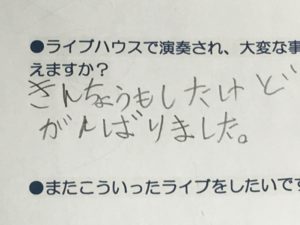 ●ライブハウスで演奏され、大変な事
えますか？
きんちょうもしたけど
がんばりました。
●またこういったライブをしたいです